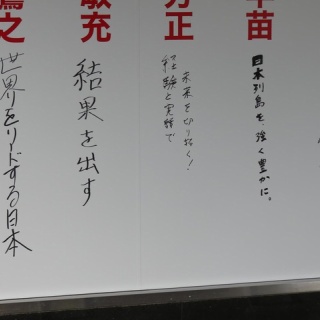 苗
日本列島を、強く豊かに。
方正
経験と実績で
未来を切り拓く!
敏充
結果を出す
之
世界をリードする日本